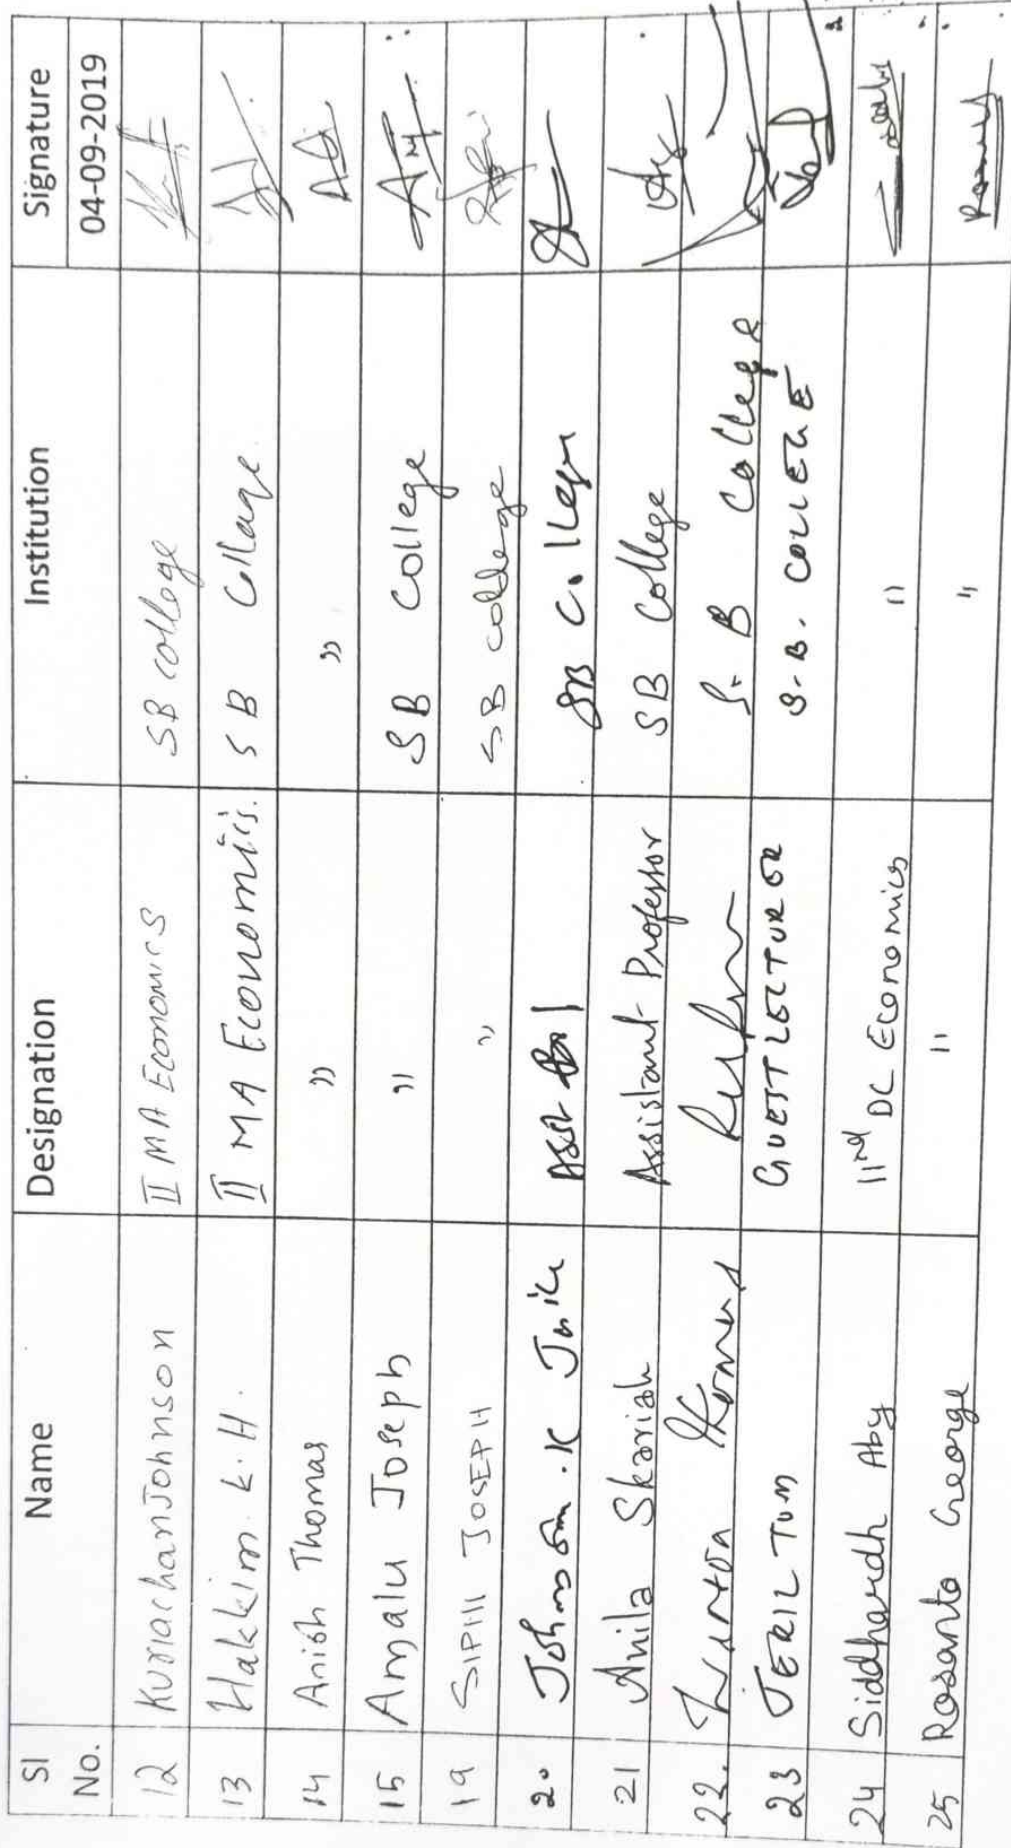 Sl No. Name Designation Institution Signature
04-09-2019
12 Kuriachan Johnson II MA Economics SB college
13 Hakkim. K. H. II MA Economics. S B Collage.
14 Anish Thomas " "
15 Amalu Joseph " S B College
19 SIPHI JOSEPH " SB college
20 Johnson .K SB College
21 Anila Skariah Assistant Professor SB College
22. Thomas S. B College
23 JERIL TOM GUEST LECTURER S. B. COLLEGE
24 Siddhardh Aby IInd DC Economics "
25 Rosanto George " "